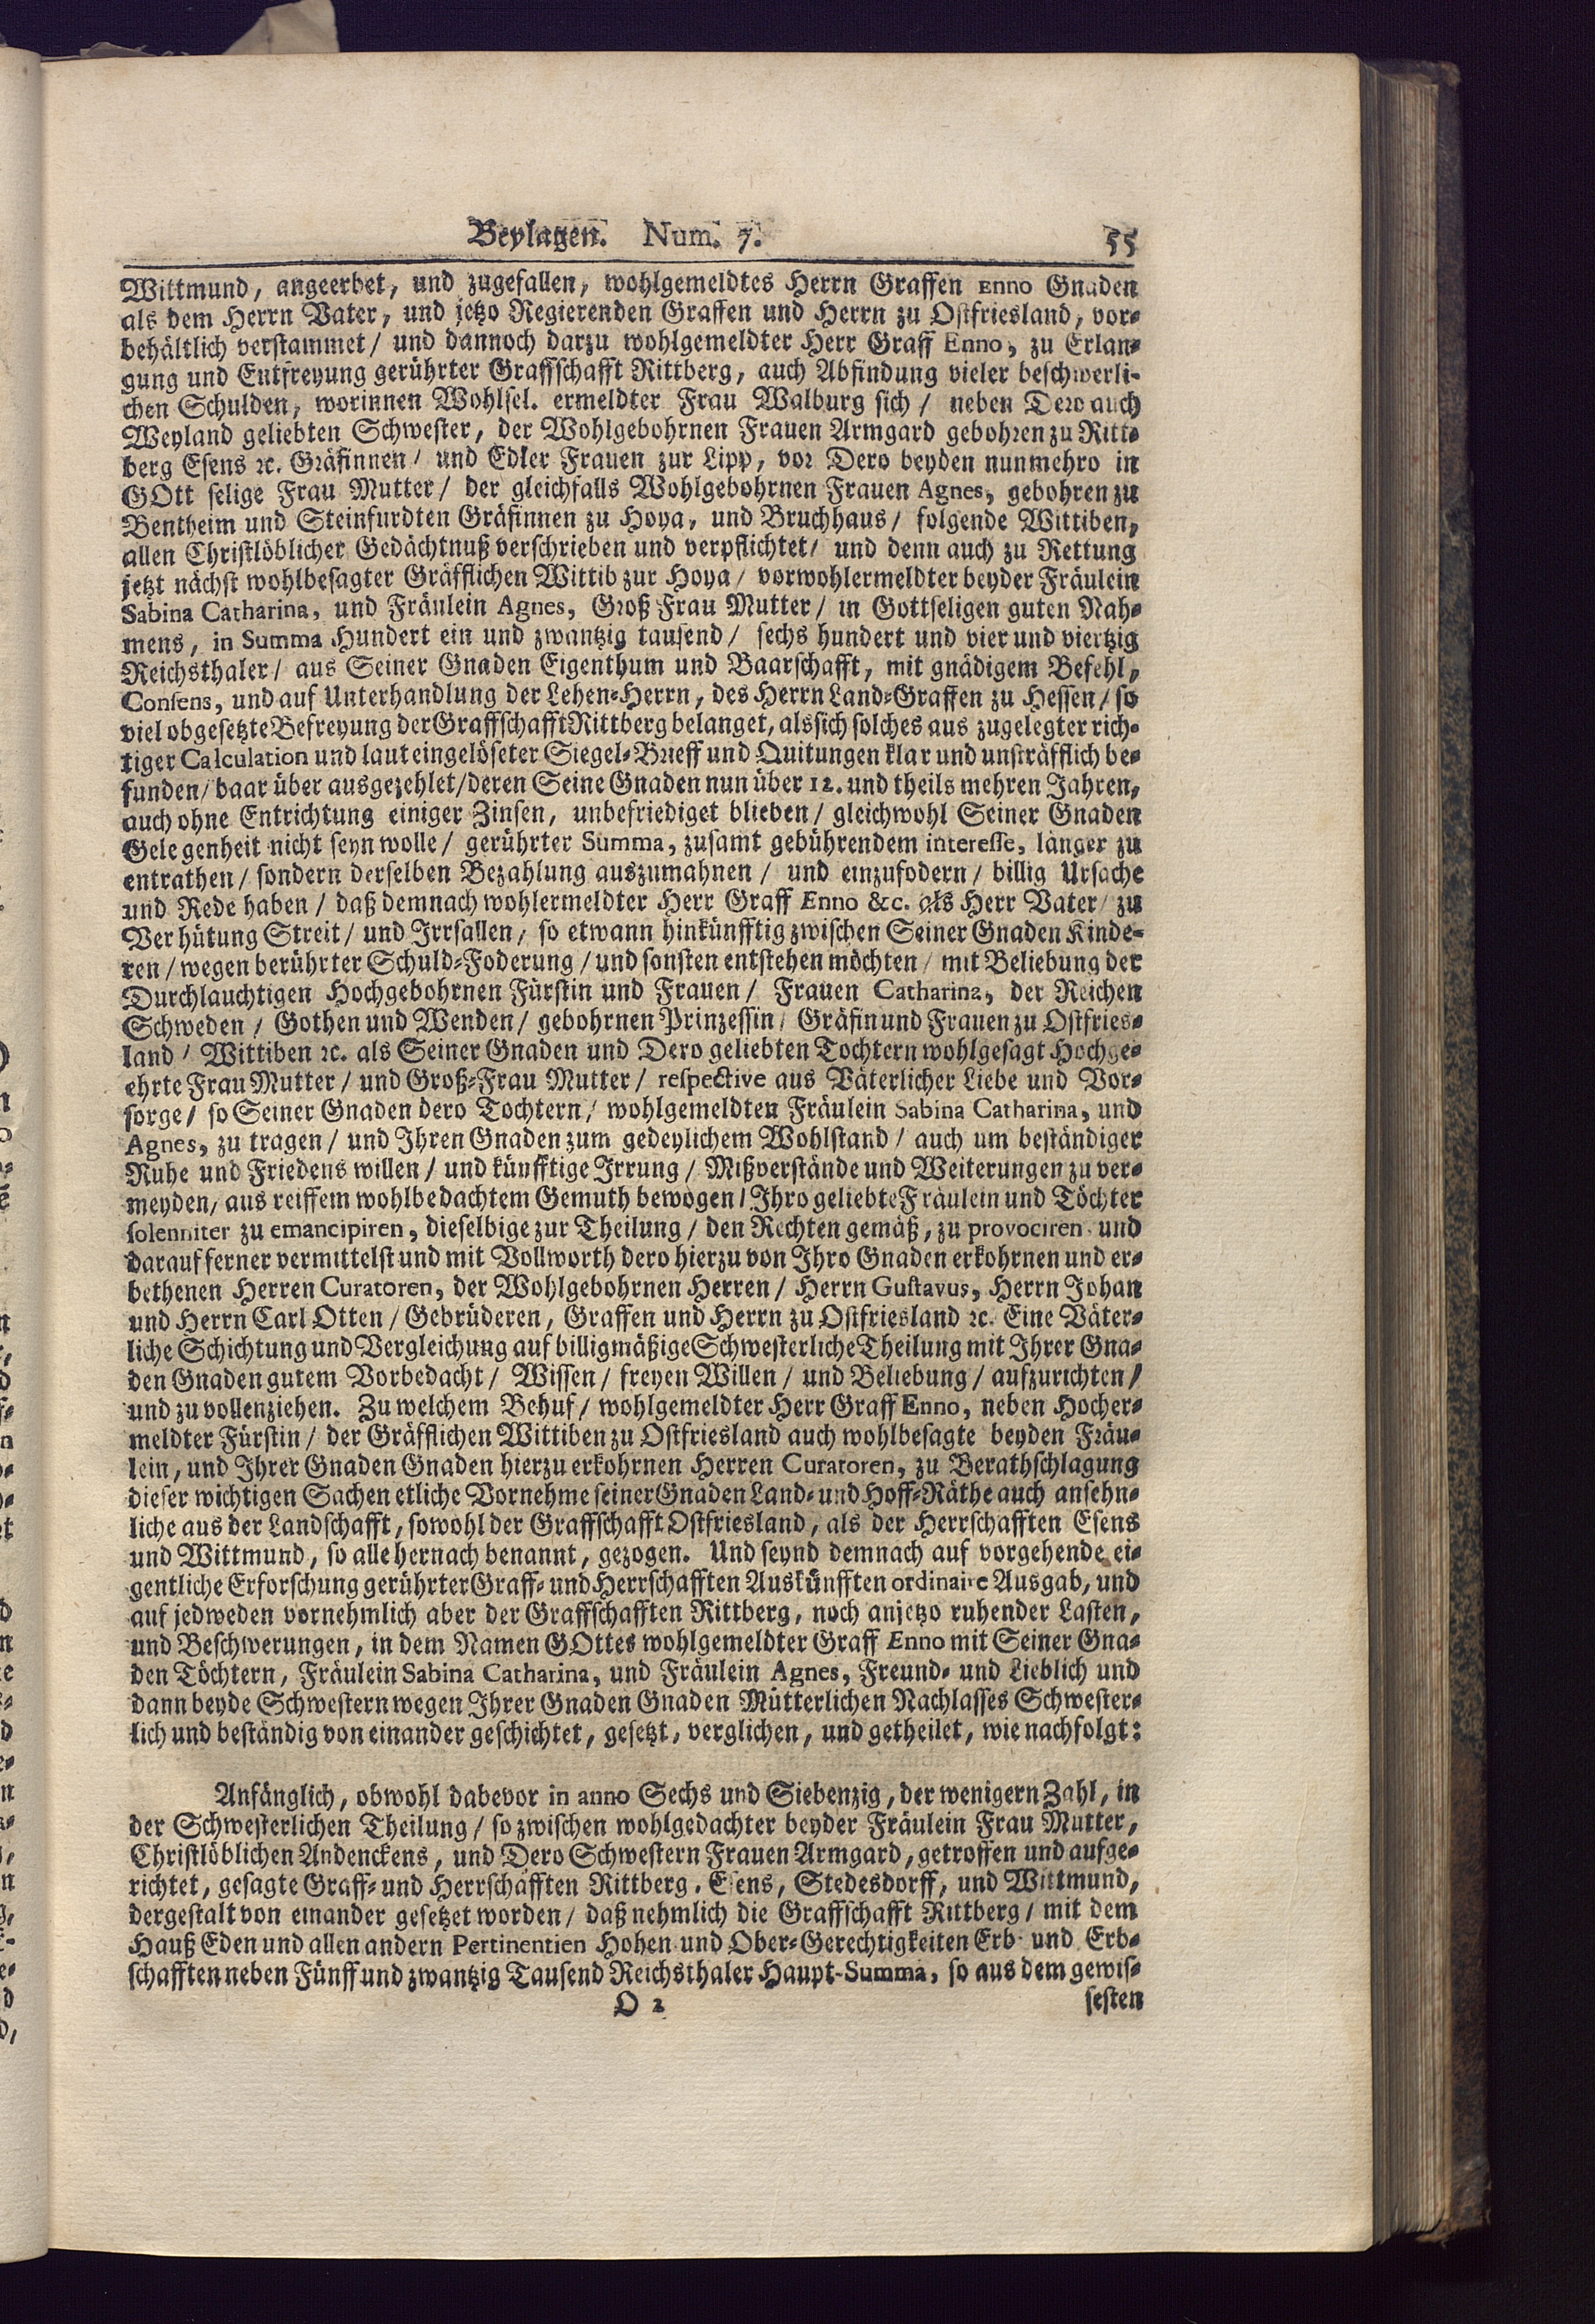 Beylagen. Num. 7. 55
Wittmund, angeerbet, und zugefallen, wohlgemeldtes Herrn Graffen Enno Gnaden
als dem Herrn Vater, und jetzo Regierenden Graffen und Herrn zu Ostfriesland, vor-
behältlich verstammet / und dannoch darzu wohlgemeldter Herr Graff Enno, zu Erlan-
gung und Entfreyung gerührter Graffschafft Rittberg, auch Abfindung vieler beschwerli-
chen Schulden, worinnen Wohlsel. ermeldter Frau Walburg sich / neben Dero auch
Weyland geliebten Schwester, der Wohlgebohrnen Frauen Armgard gebohren zu Ritt-
berg Esens ꝛc. Gräfinnen / und Edler Frauen zur Lipp, vor Dero beyden nunmehro in
GOtt selige Frau Mutter / der gleichfalls Wohlgebohrnen Frauen Agnes, gebohren zu
Bentheim und Steinfurdten Gräfinnen zu Hoya, und Bruchhaus / folgende Wittiben,
allen Christlöblicher Gedächtnuß verschrieben und verpflichtet / und denn auch zu Rettung
jetzt nächst wohlbesagter Gräfflichen Wittib zur Hoya / vorwohlermeldter beyder Fräulein
Sabina Catharina, und Fräulein Agnes, Groß Frau Mutter / in Gottseligen guten Nah-
mens, in Summa Hundert ein und zwantzig tausend / sechs hundert und vier und viertzig
Reichsthaler / aus Seiner Gnaden Eigenthum und Baarschafft, mit gnädigem Befehl,
Consens, und auf Unterhandlung der Lehen-Herrn, des Herrn Land-Graffen zu Hessen / so
viel obgesetzte Befreyung der Graffschafft Rittberg belanget, als sich solches aus zugelegter rich-
tiger Calculation und laut eingelöseter Siegel-Brieff und Quitungen klar und unsträfflich be-
funden / baar über ausgezehlet / deren Seine Gnaden nun über 12. und theils mehren Jahren,
auch ohne Entrichtung einiger Zinsen, unbefriediget blieben / gleichwohl Seiner Gnaden
Gelegenheit nicht seyn wolle / gerührter Summa, zusamt gebührendem interesse, länger zu
entrathen / sondern derselben Bezahlung auszumahnen / und einzufodern / billig Ursache
und Rede haben / daß demnach wohlermeldter Herr Graff Enno &c. als Herr Vater / zu
Verhütung Streit / und Irrsallen, so etwann hinkünfftig zwischen Seiner Gnaden Kinde-
ren / wegen berührter Schuld-Foderung / und sonsten entstehen möchten / mit Beliebung der
Durchlauchtigen Hochgebohrnen Fürstin und Frauen / Frauen Catharina, der Reichen
Schweden / Gothen und Wenden / gebohrnen Prinzessin / Gräfin und Frauen zu Ostfries-
land / Wittiben ꝛc. als Seiner Gnaden und Dero geliebten Tochtern wohlgesagt Hochge-
ehrte Frau Mutter / und Groß-Frau Mutter / respective aus Väterlicher Liebe und Vor-
sorge / so Seiner Gnaden dero Tochtern / wohlgemeldten Fräulein Sabina Catharina, und
Agnes, zu tragen / und Ihren Gnaden zum gedeylichem Wohlstand / auch um beständiger
Ruhe und Friedens willen / und künfftige Irrung / Mißverstände und Weiterungen zu ver-
meyden, aus reiffem wohlbedachtem Gemuth bewogen / Ihro geliebte Fräulein und Töchter
solenniter zu emancipiren, dieselbige zur Theilung / den Rechten gemäß, zu provociren und
darauf ferner vermittelst und mit Vollworth dero hierzu von Ihro Gnaden erkohrnen und er-
bethenen Herren Curatoren, der Wohlgebohrnen Herren / Herrn Gustavus, Herrn Johan
und Herrn Carl Otten / Gebrüderen, Graffen und Herrn zu Ostfriesland ꝛc. Eine Väter-
liche Schichtung und Vergleichung auf billigmäßige Schwesterliche Theilung mit Ihrer Gna-
den Gnaden gutem Vorbedacht / Wissen / freyen Willen / und Beliebung / aufzurichten /
und zu vollenziehen. Zu welchem Behuf / wohlgemeldter Herr Graff Enno, neben Hocher-
meldter Fürstin / der Gräfflichen Wittiben zu Ostfriesland auch wohlbesagte beyden Fräu-
lein, und Ihrer Gnaden Gnaden hierzu erkohrnen Herren Curatoren, zu Berathschlagung
dieser wichtigen Sachen etliche Vornehme seiner Gnaden Land- und Hoff-Räthe auch ansehn-
liche aus der Landschafft, sowohl der Graffschafft Ostfriesland, als der Herrschafften Esens
und Wittmund, so alle hernach benannt, gezogen. Und seynd demnach auf vorgehende ei-
gentliche Erforschung gerührter Graff- und Herrschafften Auskünfften ordinaire Ausgab, und
auf jedweden vornehmlich aber der Graffschafften Rittberg, noch anjetzo ruhender Lasten,
und Beschwerungen, in dem Namen GOttes wohlgemeldter Graff Enno mit Seiner Gna-
den Töchtern, Fräulein Sabina Catharina, und Fräulein Agnes, Freund- und Lieblich und
dann beyde Schwestern wegen Ihrer Gnaden Gnaden Mütterlichen Nachlasses Schwester-
lich und beständig von einander geschichtet, gesetzt, verglichen, und getheilet, wie nachfolgt:
Anfänglich, obwohl dabevor in anno Sechs und Siebenzig, der wenigern Zahl, in
der Schwesterlichen Theilung / so zwischen wohlgedachter beyder Fräulein Frau Mutter,
Christlöblichen Andenckens, und Dero Schwestern Frauen Armgard, getroffen und aufge-
richtet, gesagte Graff- und Herrschafften Rittberg, Esens, Stedesdorff, und Wittmund,
dergestalt von einander gesetzet worden / daß nehmlich die Graffschafft Rittberg / mit dem
Hauß Eden und allen andern Pertinentien Hohen und Ober-Gerechtigkeiten Erb- und Erb-
schafften neben Fünff und zwantzig Tausend Reichsthaler Haupt-Summa, so aus dem gewis-
O 2 sesten